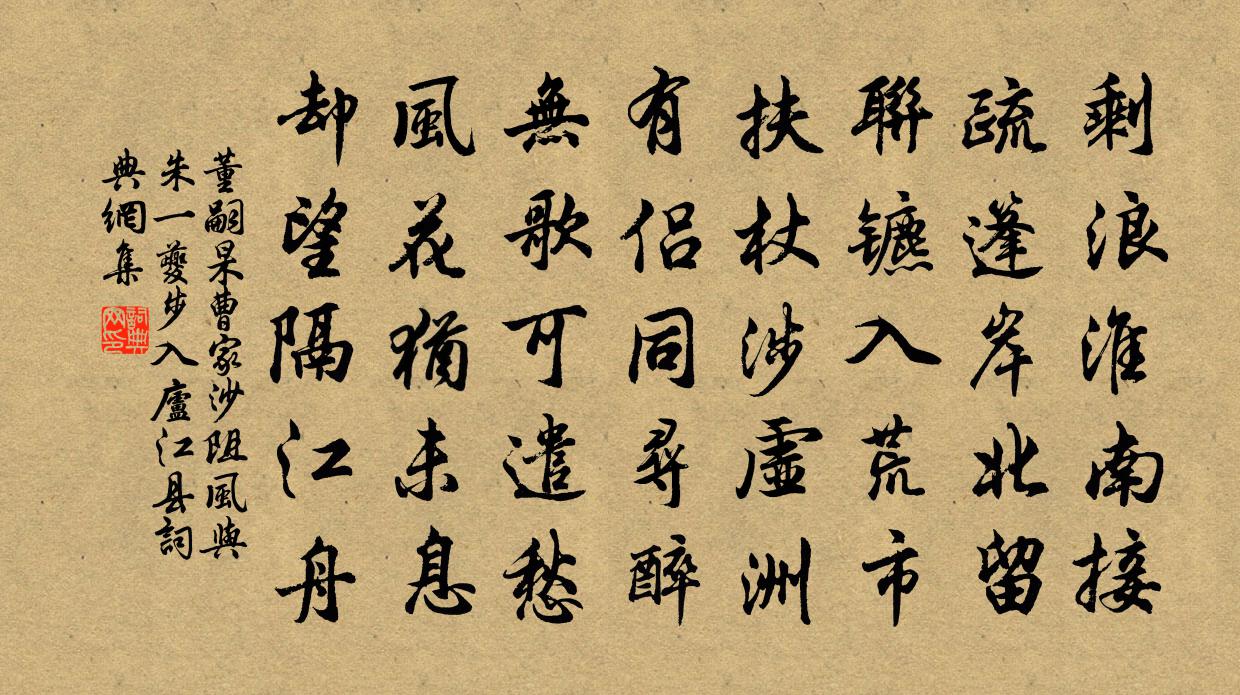 剩浪淮南接
疏蓬岸北留
聯镳入荒市
扶杖涉虛洲
有侣同尋醉
無歌可遣愁
風花猶未息
却望隔江舟
董嗣杲曹家沙阻風與
朱一夔步入廬江县詞
典網集
詞典网印